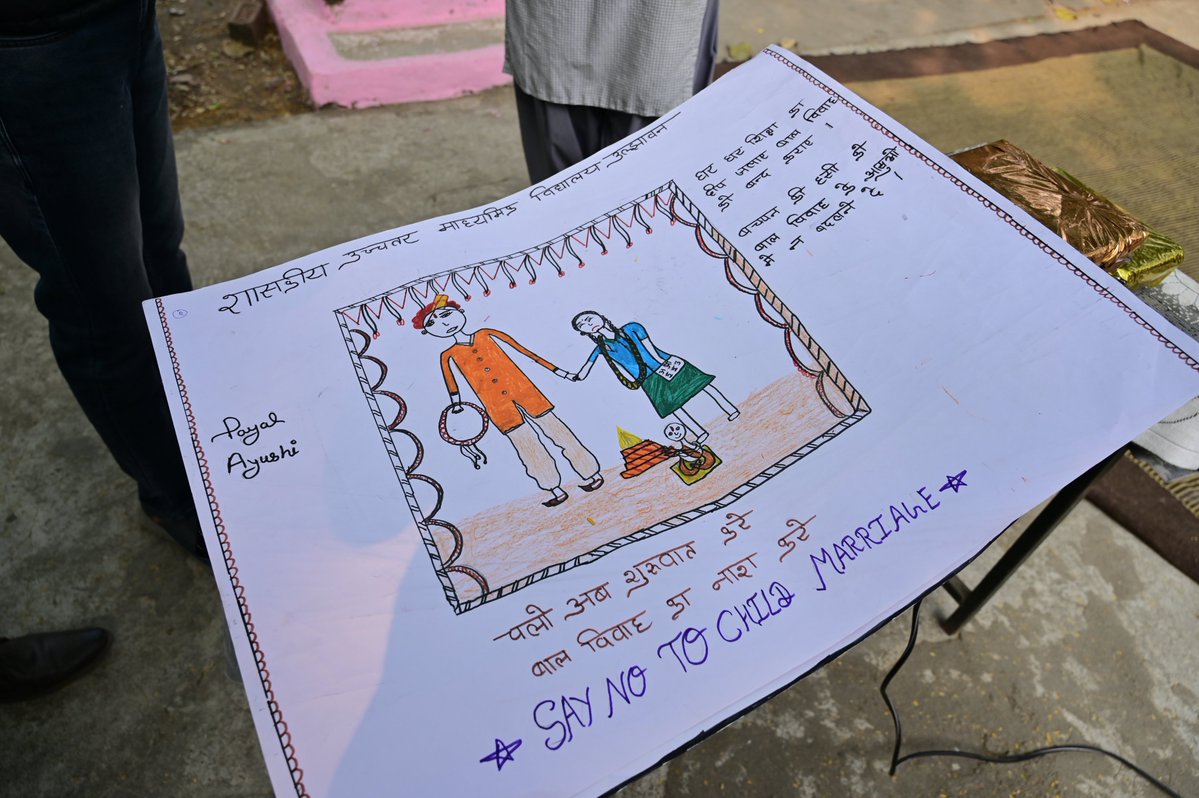 शासकीय उच्चतर माध्यमिक विद्यालय उल्झावन
घर घर शिक्षा का
दीप जलाए बाल विवाह
को बन्द कराए ।
बचपन की हंसी को
बाल विवाह के
न बदलने दे ।
Payal
Ayushi
चलो अब शुरुवात करे
बाल विवाह का नाश करे
SAY NO TO CHILD MARRIAGE